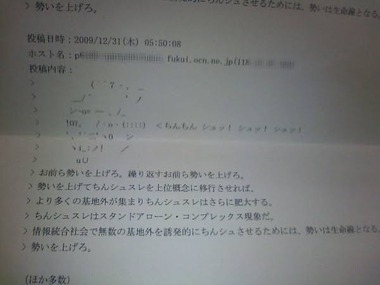 > 勢いを上げろ。
投稿日時：2009/12/31(木) 05:50:08
ホスト名：p
.fukui.ocn.ne.jp(118
投稿内容：
＜ちんちん シュッ！ シュッ！ シュッ！
> お前ら勢いを上げろ。繰り返すお前ら勢いを上げろ。
> 勢いを上げてちんシュスレを上位概念に移行させれば、
> より多くの基地外が集まりちんシュスレはさらに肥大する。
> ちんシュスレはスタンドアローン・コンプレックス現象だ。
> 情報統合社会で無数の基地外を誘発的にちんシュさせるためには、勢いは生命線となる。
> 勢いを上げろ。
(ほか多数)